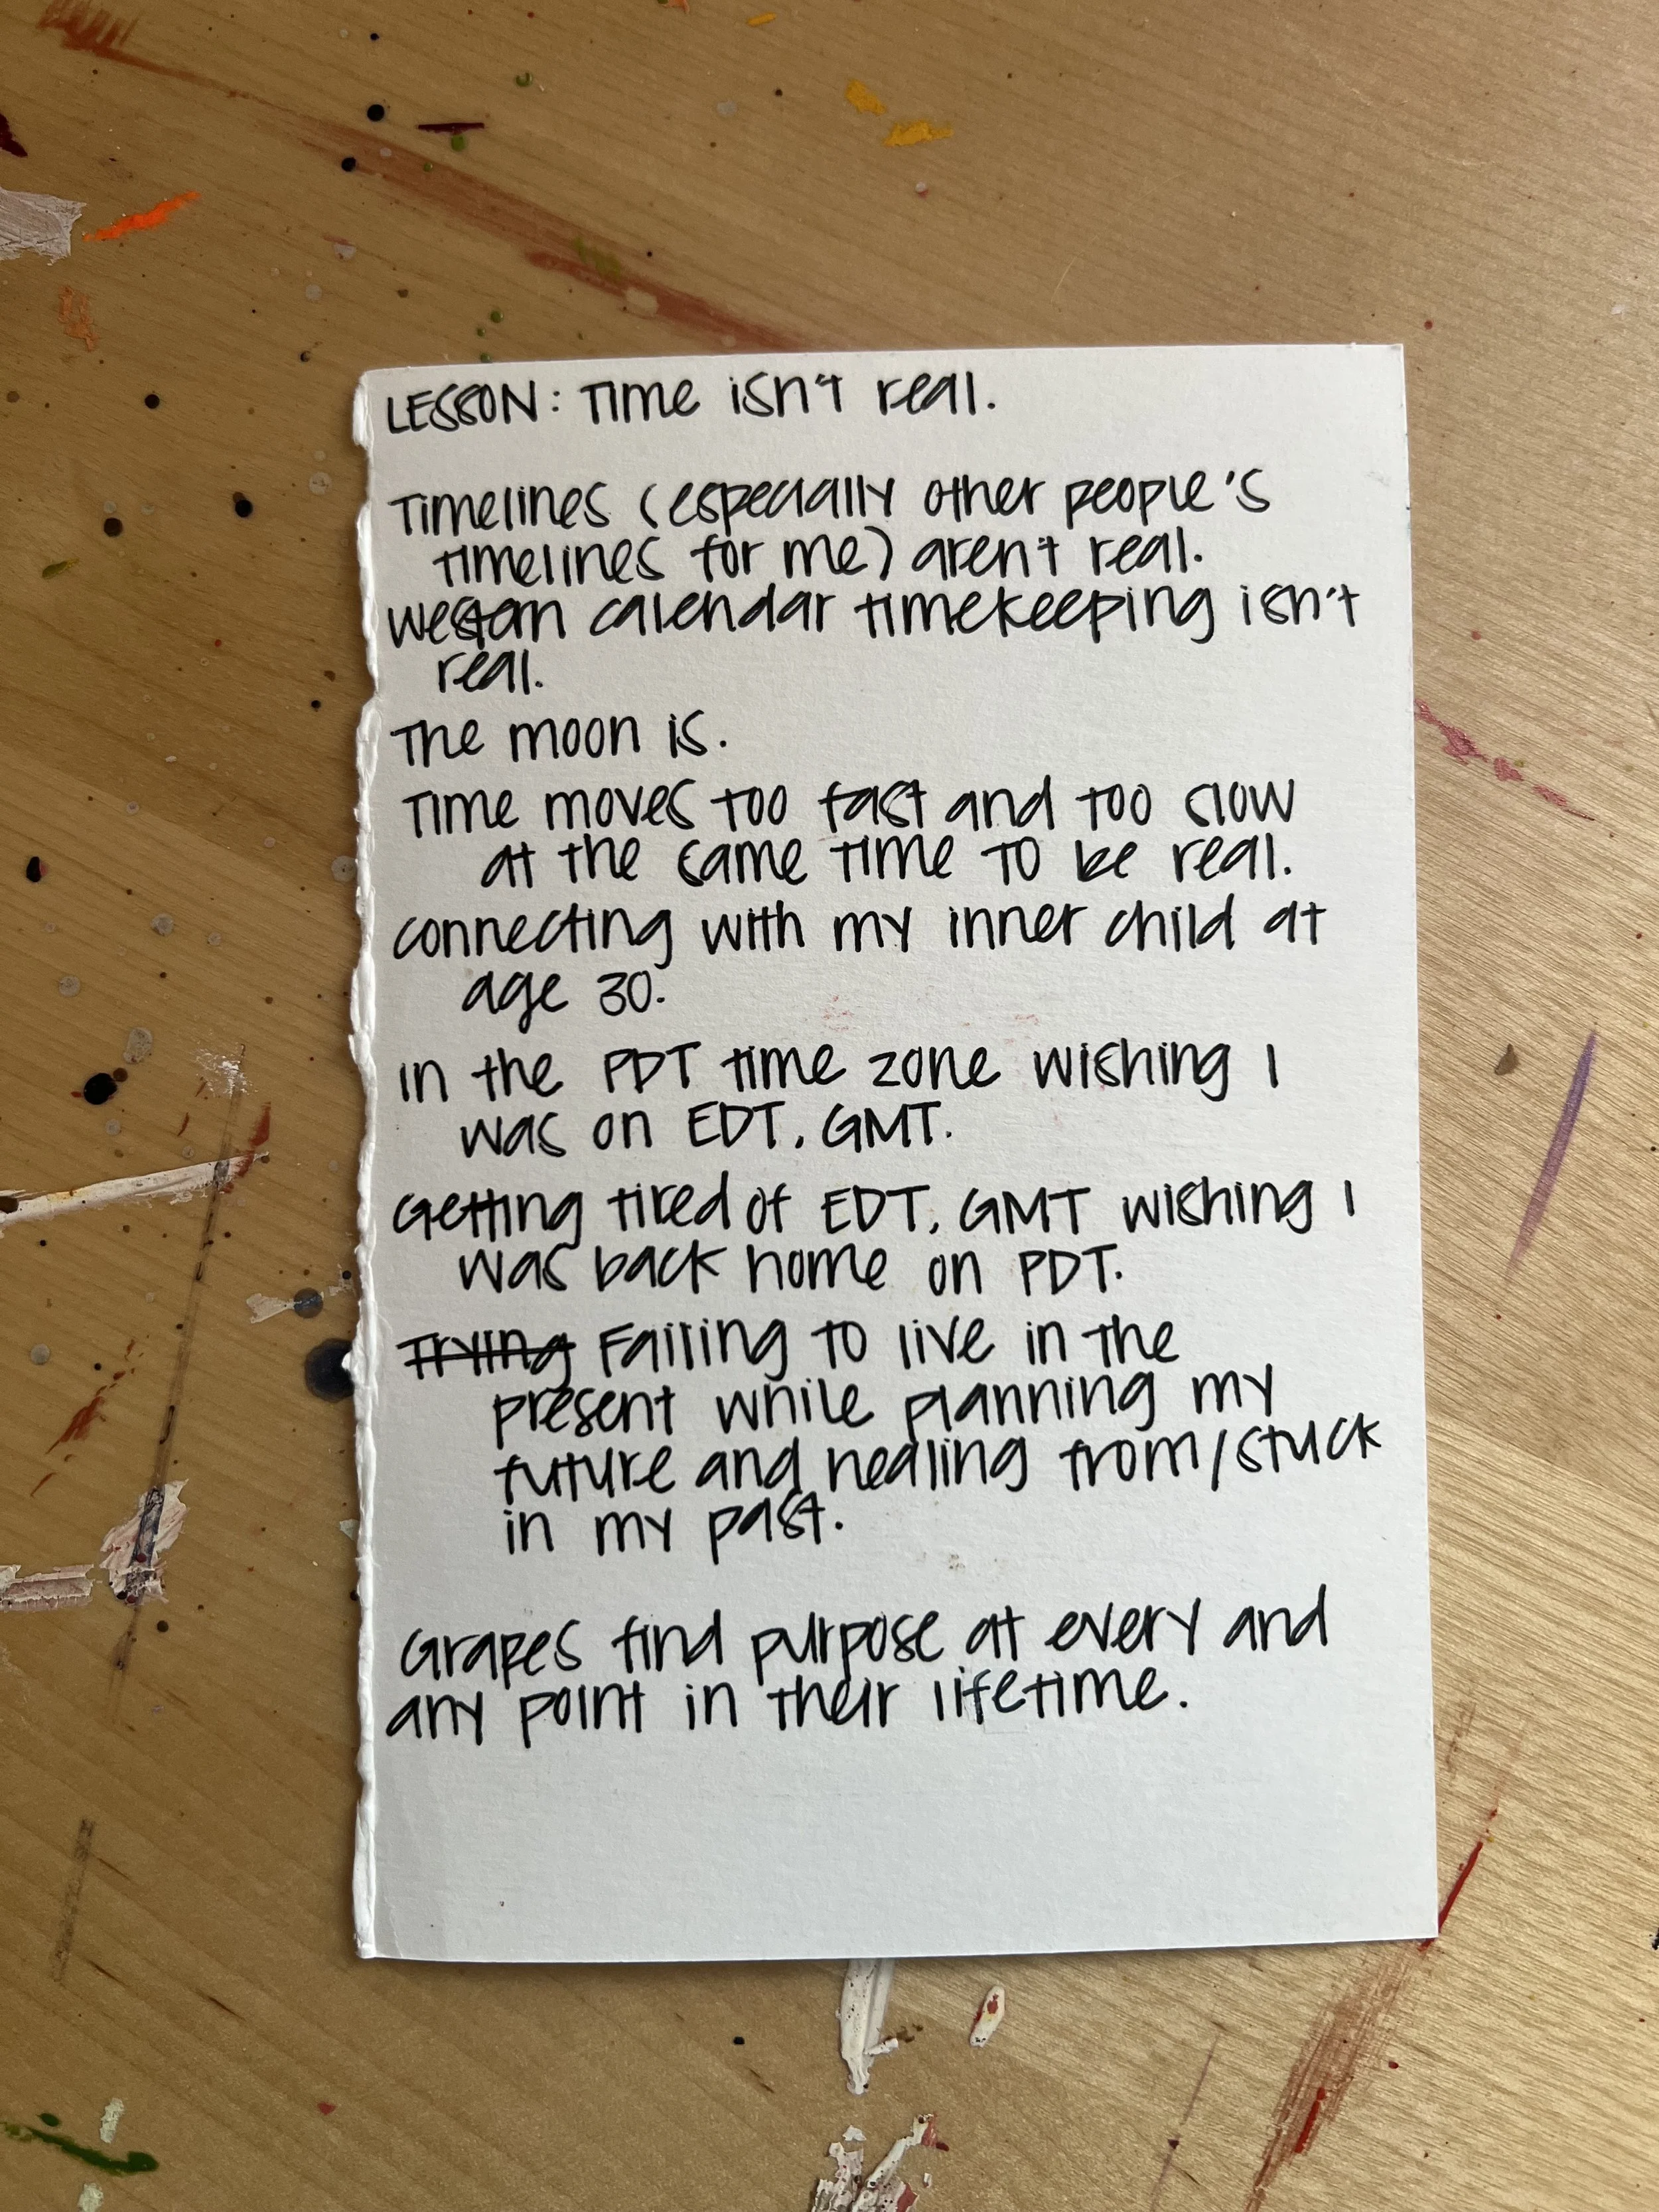 LESSON: Time isn't real.
Timelines (especially other people's
timelines for me) aren't real.
Western calendar timekeeping isn't
real.
The moon is.
Time moves too fast and too slow
at the same time to be real.
Connecting with my inner child at
age 30.
In the PDT time zone wishing I
was on EDT, GMT.
Getting tired of EDT, GMT wishing I
was back home on PDT.
Trying Failing to live in the
present while planning my
future and healing from/stuck
in my past.
Grapes find purpose at every and
any point in their lifetime.